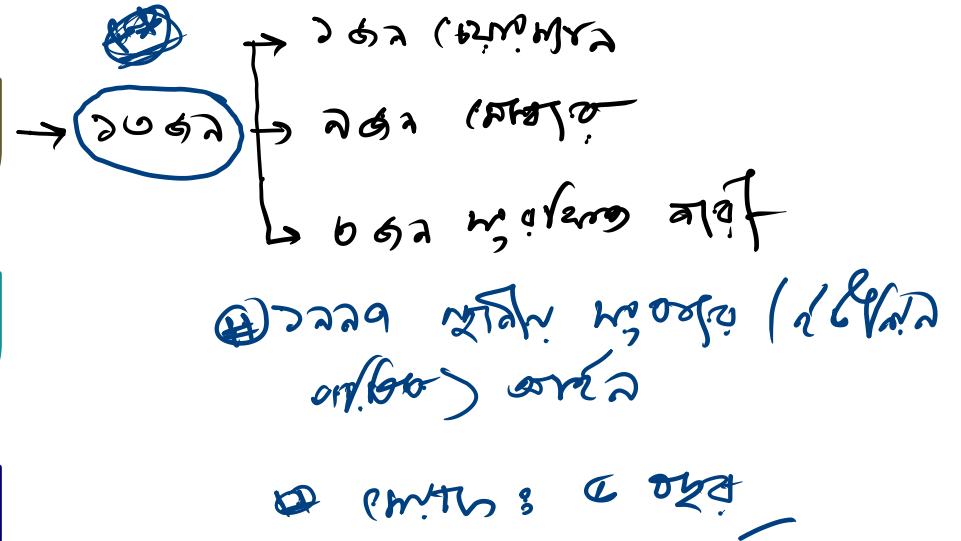 ১ জন চেয়ারম্যান
১৩ জন
৯ জন মেম্বার
৩ জন সংরক্ষিত নারী
১৯৯৭ স্থানীয় সরকার (ইউনিয়ন
পরিষদ) আইন
মেয়াদ : ৫ বছর